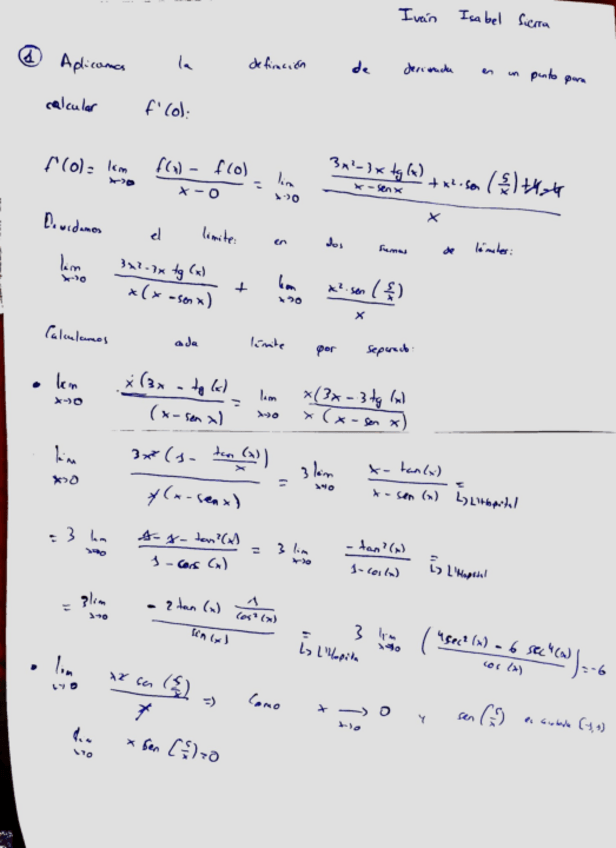 Iván Isabel Sierra
① Aplicamos la definición de derivada en un punto para
calcular f'(0):
f'(0) = lim x→0 (f(x) - f(0))/(x - 0) = lim x→0 ((3x² - 3x tg(x))/(x - senx) + x²·sen(5/x) + 4 - 4)/x
Dividimos el límite en dos sumas de límites:
lim x→0 (3x² - 3x tg(x))/(x(x - senx)) + lim x→0 (x²·sen(5/x))/x
Calculamos cada límite por separado:
• lim x→0 x(3x - tg(x))/(x - senx) = lim x→0 x(3x - 3tg(x))/(x(x - sen x))
lim x→0 3x²(1 - tan(x)/x)/(x(x - senx)) = 3 lim x→0 (x - tan(x))/(x - sen(x)) = L'Hopital
= 3 lim x→0 (1 - 1 - tan²(x))/(1 - cos(x)) = 3 lim x→0 (-tan²(x))/(1 - cos(x)) = L'Hopital
= 3 lim x→0 (-2 tan(x) 1/cos²(x))/(sen(x)) = L'Hopita 3 lim x→0 ((4sec²(x) - 6 sec⁴(x))/cos(x)) = -6
• lim x→0 (x² sen(5/x))/x ⇒ Como x → 0 x→0 y sen(5/x) (-1,1)
lim x→0 x sen(5/x) = 0